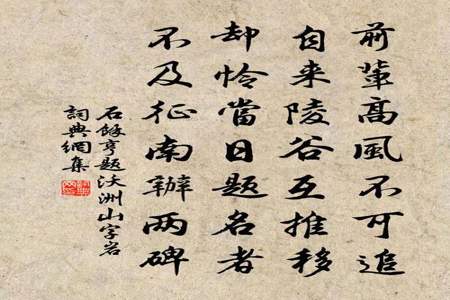 前輩高風不可追
自来陵谷互推移
却怜當日題名者
不及征南辦两碑
石餘亨題沃洲山字岩
詞典網集